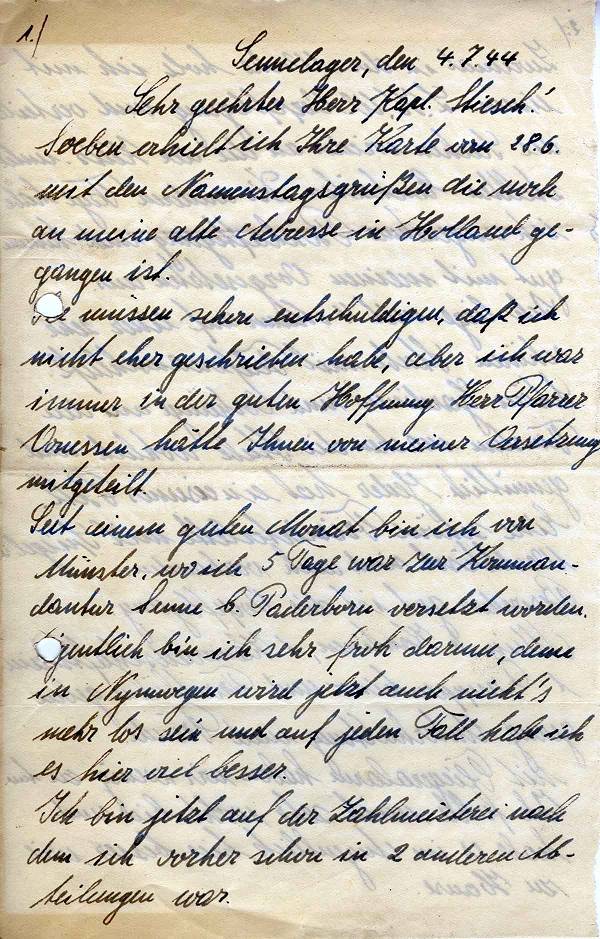 1.)
Sennelager, den 4.7.44
Sehr geehrter Herr Kapl. Stiesch!
Soeben erhielt ich Ihre Karte vom 28.6.
mit den Namenstagsgrüßen die noch
an meine alte Adresse in Holland ge-
gangen ist.
müssen schon entschuldigen, daß ich
nicht eher geschrieben habe, aber ich war
immer in der guten Hoffnung Herr Pfarrer
Vonessen hätte Ihnen von meiner Versetzung
mitgeteilt.
Seit einem guten Monat bin ich von
Münster, wo ich 5 Tage war zur Komman-
dantur Senne b. Paderborn versetzt worden.
igentlich bin ich sehr froh darum, denn
in Nymwegen wird jetzt auch nicht's
mehr los sein und auf jeden Fall habe ich
es hier viel besser.
Ich bin jetzt auf der Zahlmeisterei nach
dem ich vorher schon in 2 anderen Ab-
teilungen war.